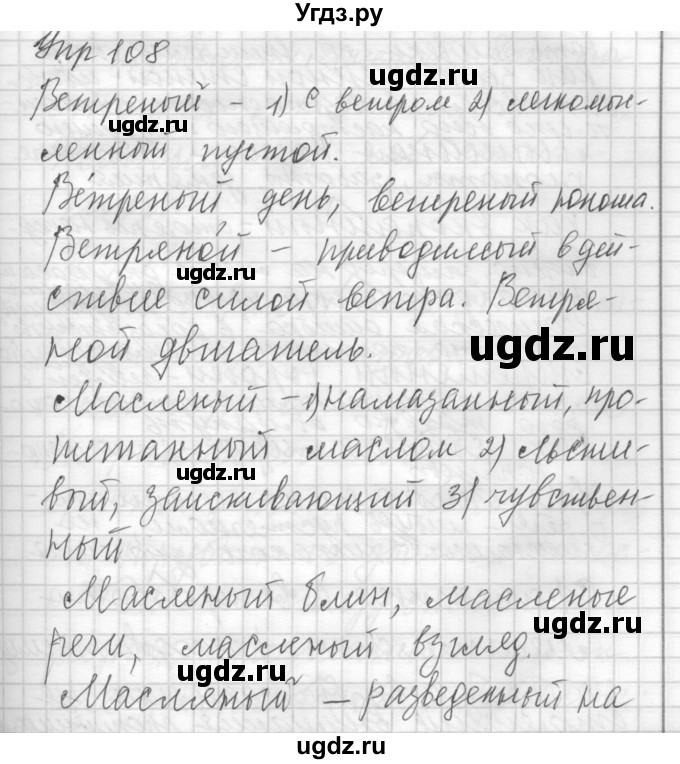 Угдз.ру
Упр 108
ugdz.ru
Ветреный - 1) с ветром 2) легкомыс-
ugdz.ru
ленный пустой.
Ве́треный день, ветреный юноша.
Ветряно́й - приводимый в дей-
ugdz.ru
ствие силой ветра. Ветря-
ugdz.ru
ной двигатель.
Масленый - 1) намазанный, про-
питанный маслом 2) льсти-
ugdz.ru
вый, заискивающий 3) чувствен-
ный
Масленый блин, масленые
ugdz.ru
речи, масленый взгляд.
ugdz.ru
Масляный - разведенный на
ugdz.ru